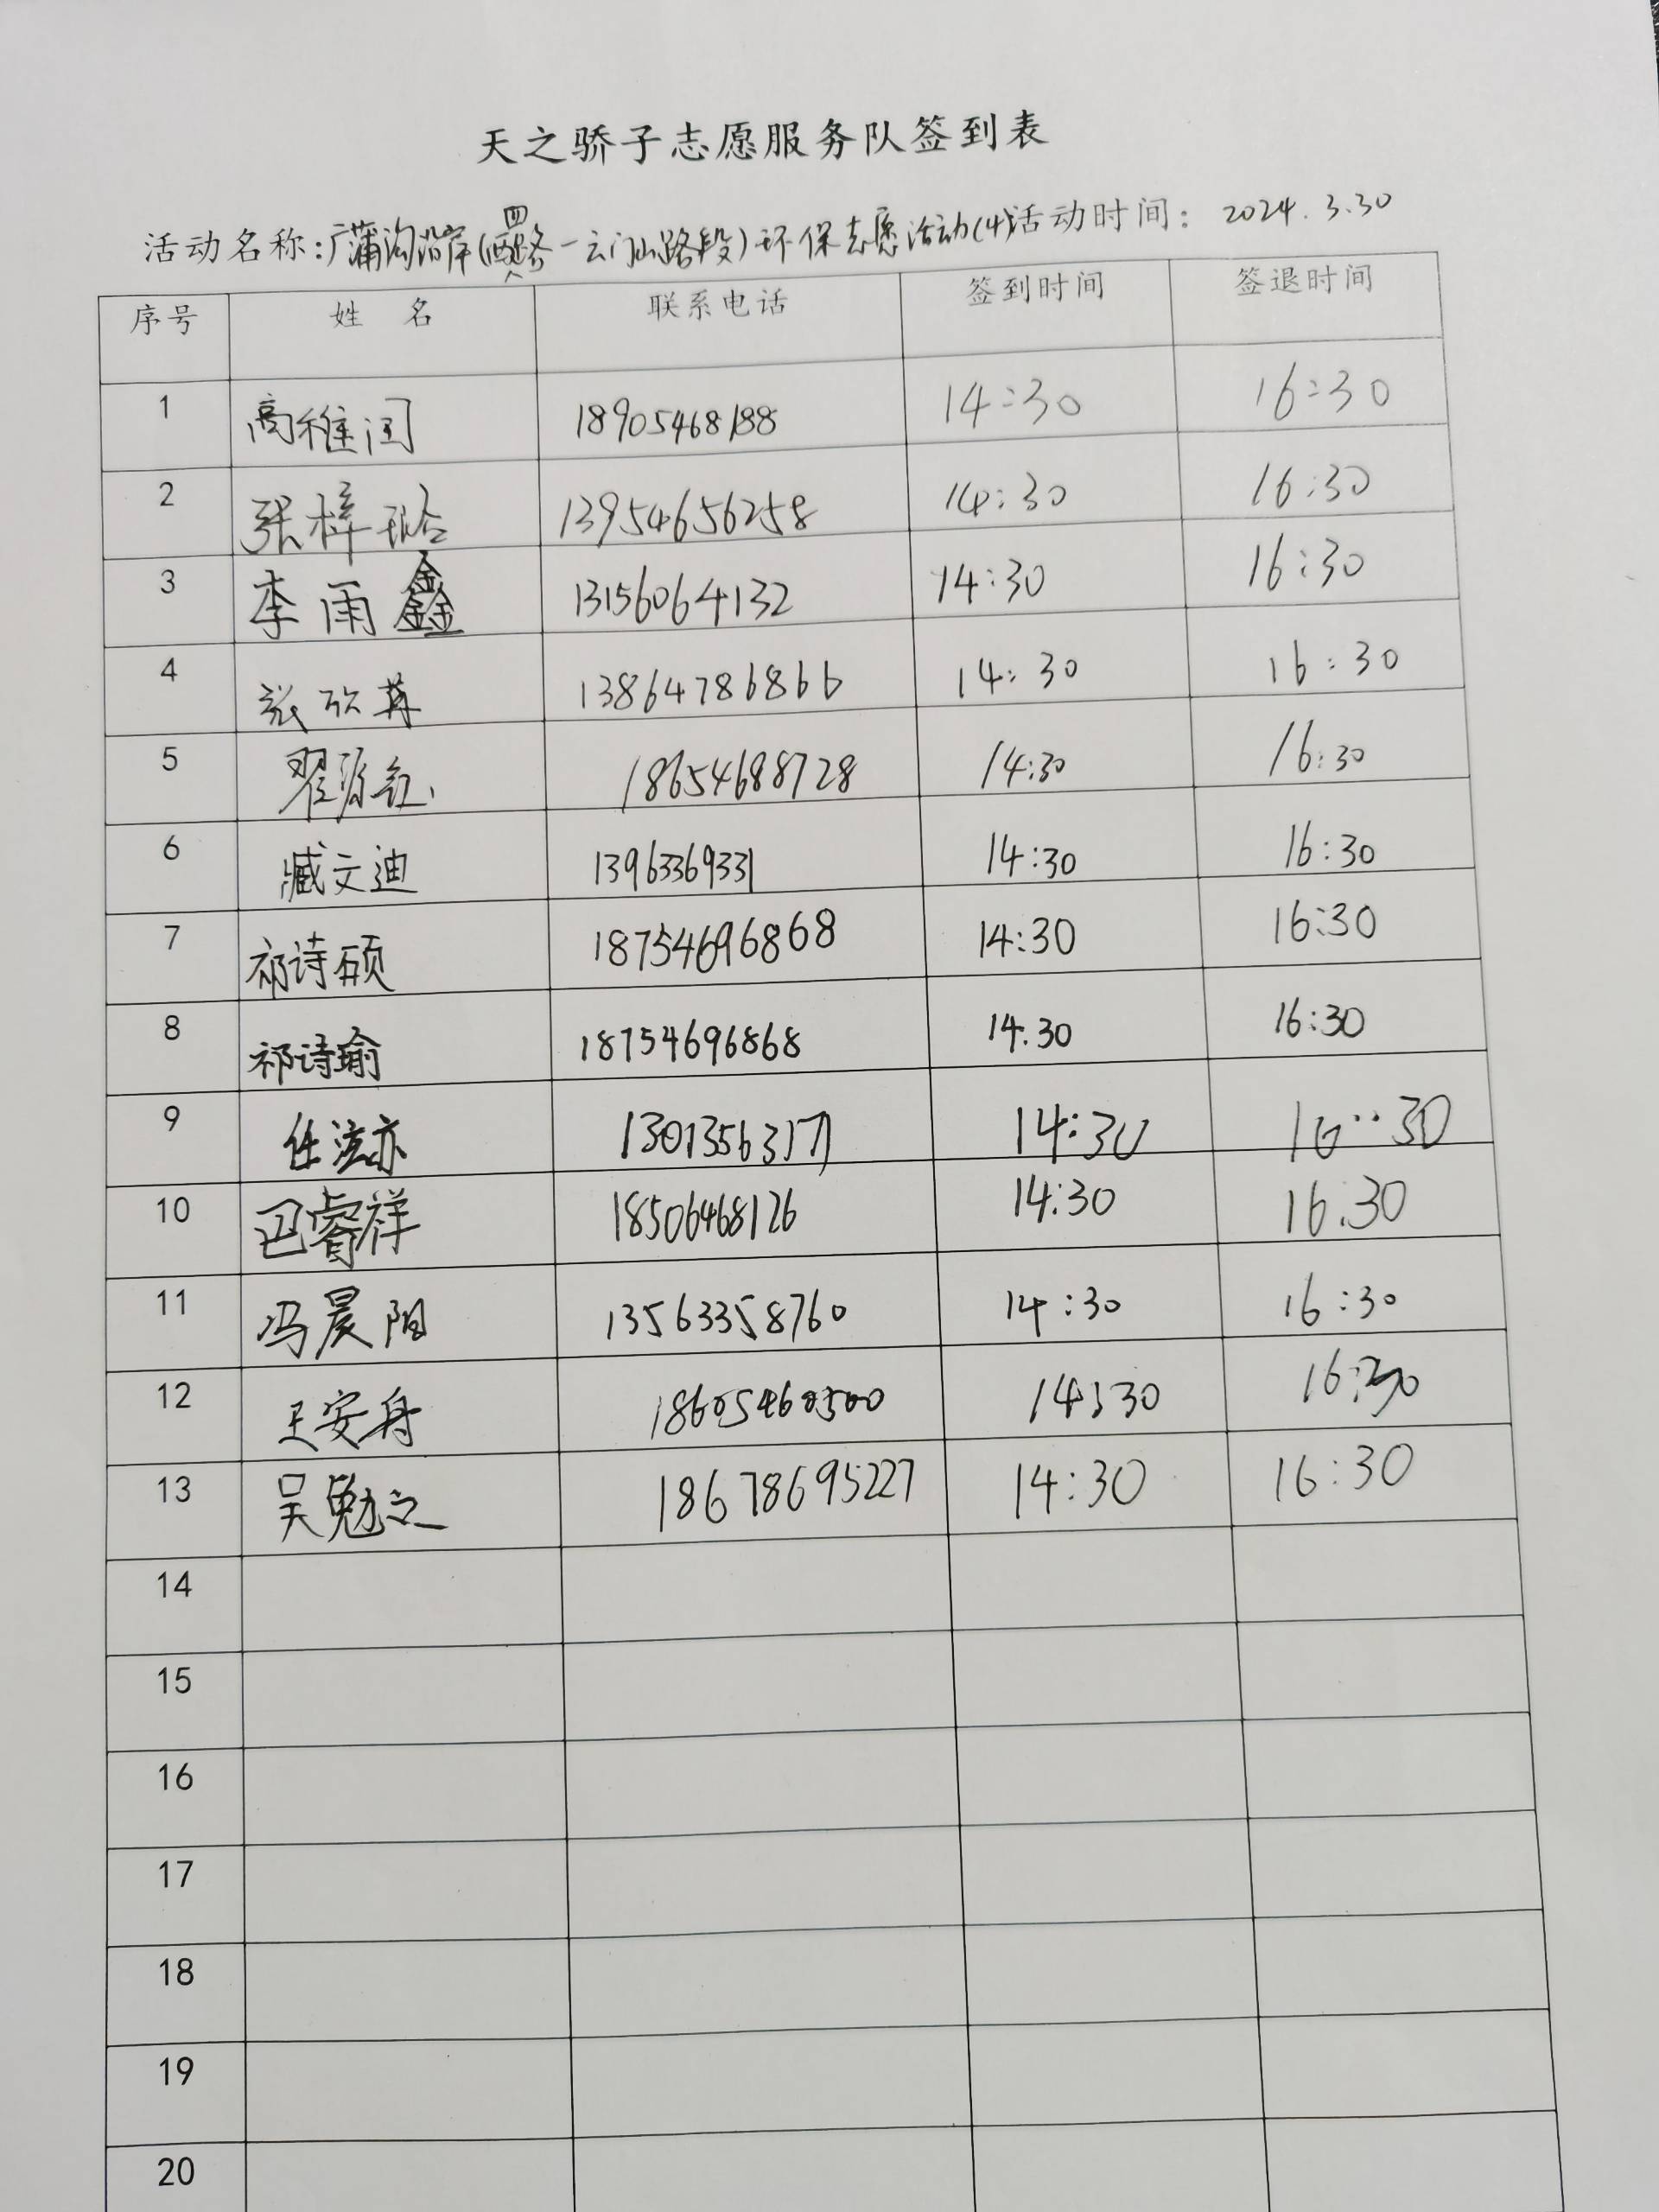 天之骄子志愿服务队签到表
活动名称:广蒲沟沿岸(西四路一云门山路段)环保志愿活动(4)活动时间: 2024.3.30
序号 姓 名 联系电话 签到时间 签退时间
1 高稚闰 18905468188 14:30 16:30
2 张梓晗 13954656258 14:30 16:30
3 李雨鑫 13156064132 14:30 16:30
4 张欣苒 13864786866 14:30 16:30
5 翟源 18654688728 14:30 16:30
6 臧文迪 13963369331 14:30 16:30
7 祁诗硕 18754696868 14:30 16:30
8 祁诗瑜 18754696868 14:30 16:30
9 任泫亦 14:30 16:30
10 巴睿祥 18506468126 14:30 16:30
11 冯晨阳 13563358760 14:30 16:30
12 王安舟 18605460500 14:30 16:30
13 吴勉之 18678695227 14:30 16:30
14
15
16
17
18
19
20